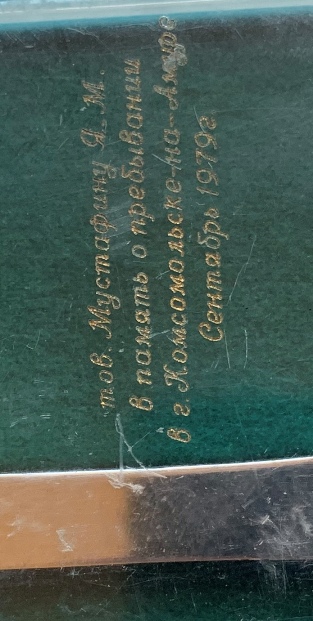 тов. Мустафину Я.М.
в память о пребывании
в г. Комсомольске-на-Амуре
Сентябрь 1979г